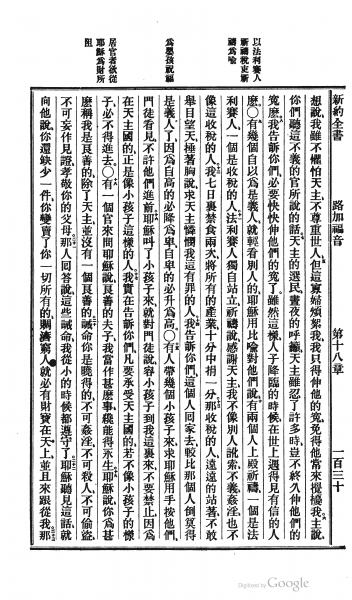 新約全書 路加福音 第十八章 一百三十
想說我雖不懼怕天主不尊重世人但這寡婦煩絮我我只得伸他的寃免得他常來攪擾我主說
你們聽這不義的官所說的話天主的選民晝夜的呼籲天主雖忍了許多時豈不終久伸他們的
寃麽我告訴你們必要快快伸他們的寃了雖然這樣人子降臨的時候在世上遇得見有信的人
麽〇有幾個自以爲是義人就輕看別人的耶穌用比喻對他們說有兩個人上殿祈禱一個是法
利賽人一個是收稅的人法利賽人獨自站立祈禱說感謝天主我不像別人訛索不義姦淫也不
像這收稅的人我七日裏禁食兩次將所有的產業十分中捐一分那收稅的人遠遠的站著不敢
舉目望天極著胸說求天主憐憫我這有罪的人我告訴你們這個人回家去較比那個人倒算得
是義人了因爲自高的必降爲卑自卑的必升爲高〇有人帶幾個小孩子來求耶穌用手按他們
門徒看見不許他們進前耶穌叫了小孩子來就對門徒說容小孩子到我這裏來不要禁止因爲
在天主國的正是像小孩子這樣的人我實在告訴你們凡要承受天主國的若不像小孩子的樣
子必不得進去〇有一個官來問耶穌說良善的夫子我當作甚麽事纔能得永生耶穌說你爲甚
麽稱我是良善的除了天主並沒有一個良善的誡命你是曉得的不可姦淫不可殺人不可偷盜
不可妄作見證孝敬你的父母那人回答說這些誡命我從小的時候都遵守了耶穌聽見這話就
向他說你還缺少一件你變賣了你一切所有的賙濟窮人就必有財寶在天上並且來跟從我那
以法利賽人
新禱稅吏新
禱爲喻
爲嬰孩祝福
居官者欲從
耶穌爲財所
阻
Digitized by Google